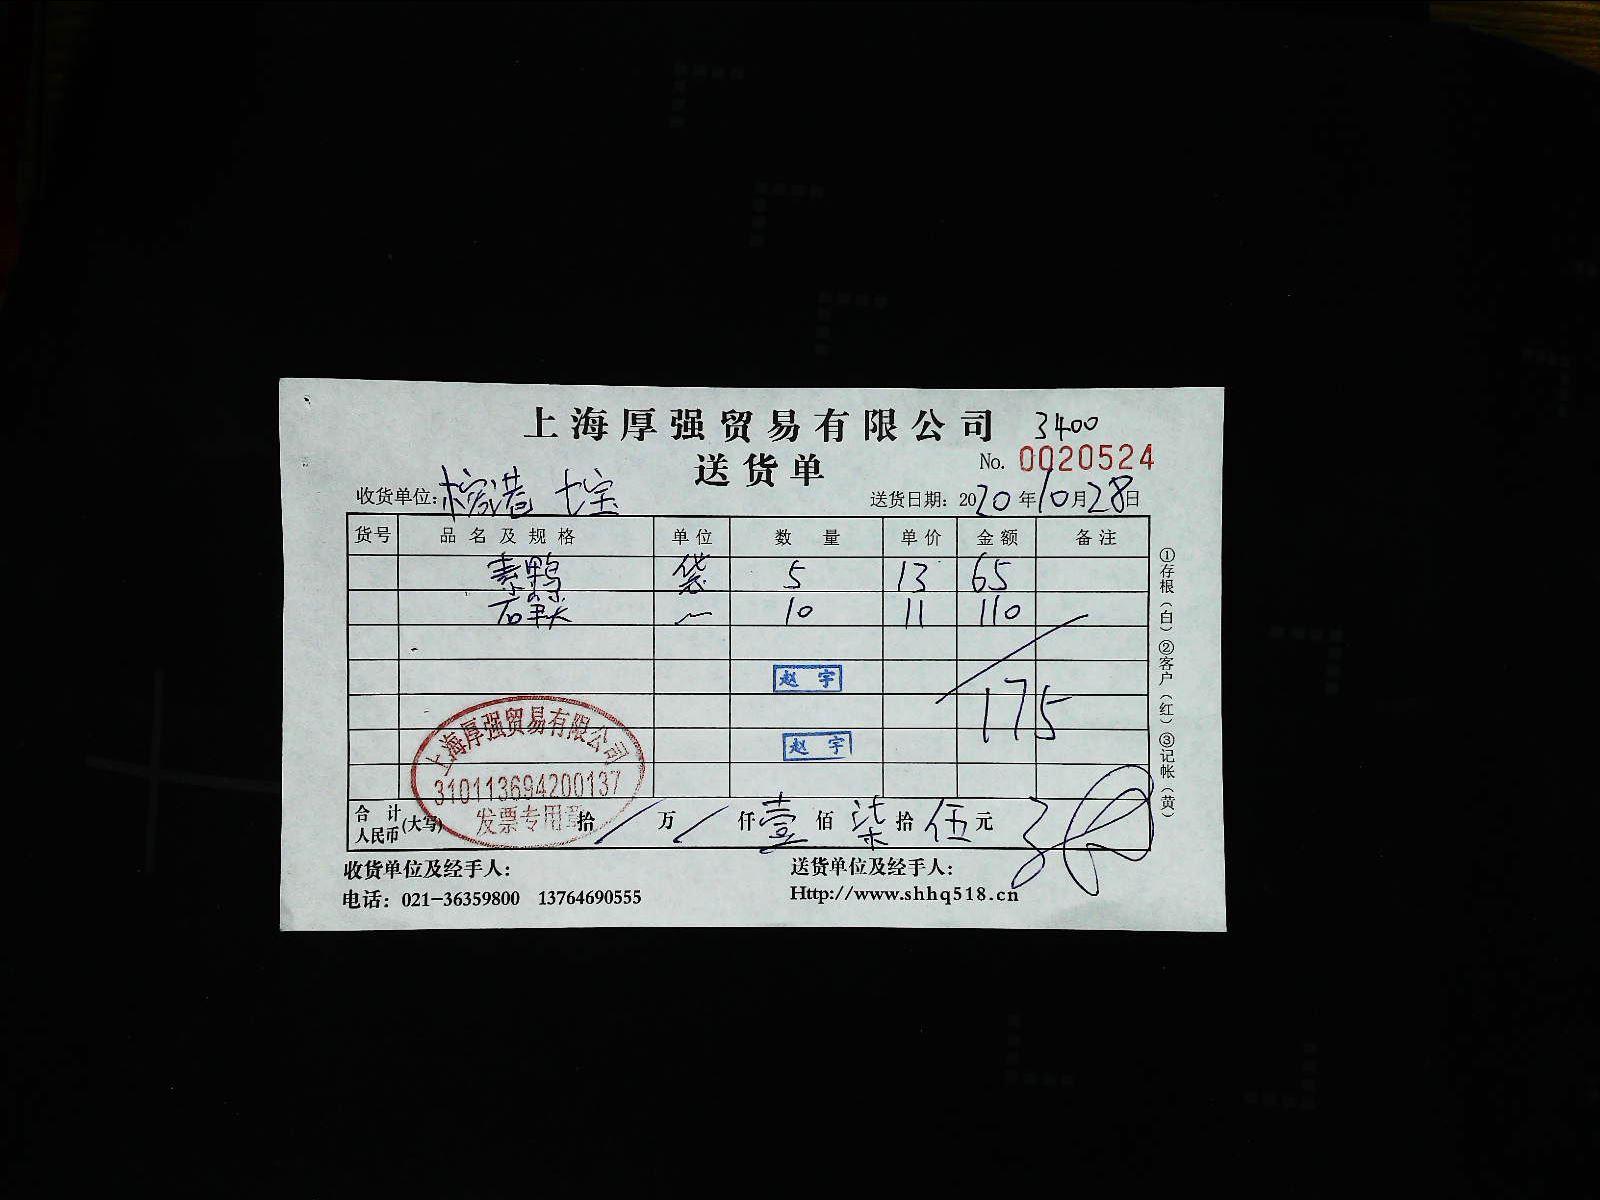 上海厚强贸易有限公司 3400
送货单 No. 0020524
收货单位: 榕港 七宝 送货日期: 2020年10月28日
货号 品名及规格 单位 数量 单价 金额 备注
素鸭 袋 5 13 65
10 11 110
赵宇
175
赵宇
上海厚强贸易有限公司
310113694200137
发票专用章
合计人民币(大写) 拾 / 万 / 仟 壹 佰 柒 拾 伍 元
收货单位及经手人: 送货单位及经手人:
电话: 021-36359800 13764690555 Http://www.shhq518.cn
①存根(白)②客户(红)③记帐(黄)